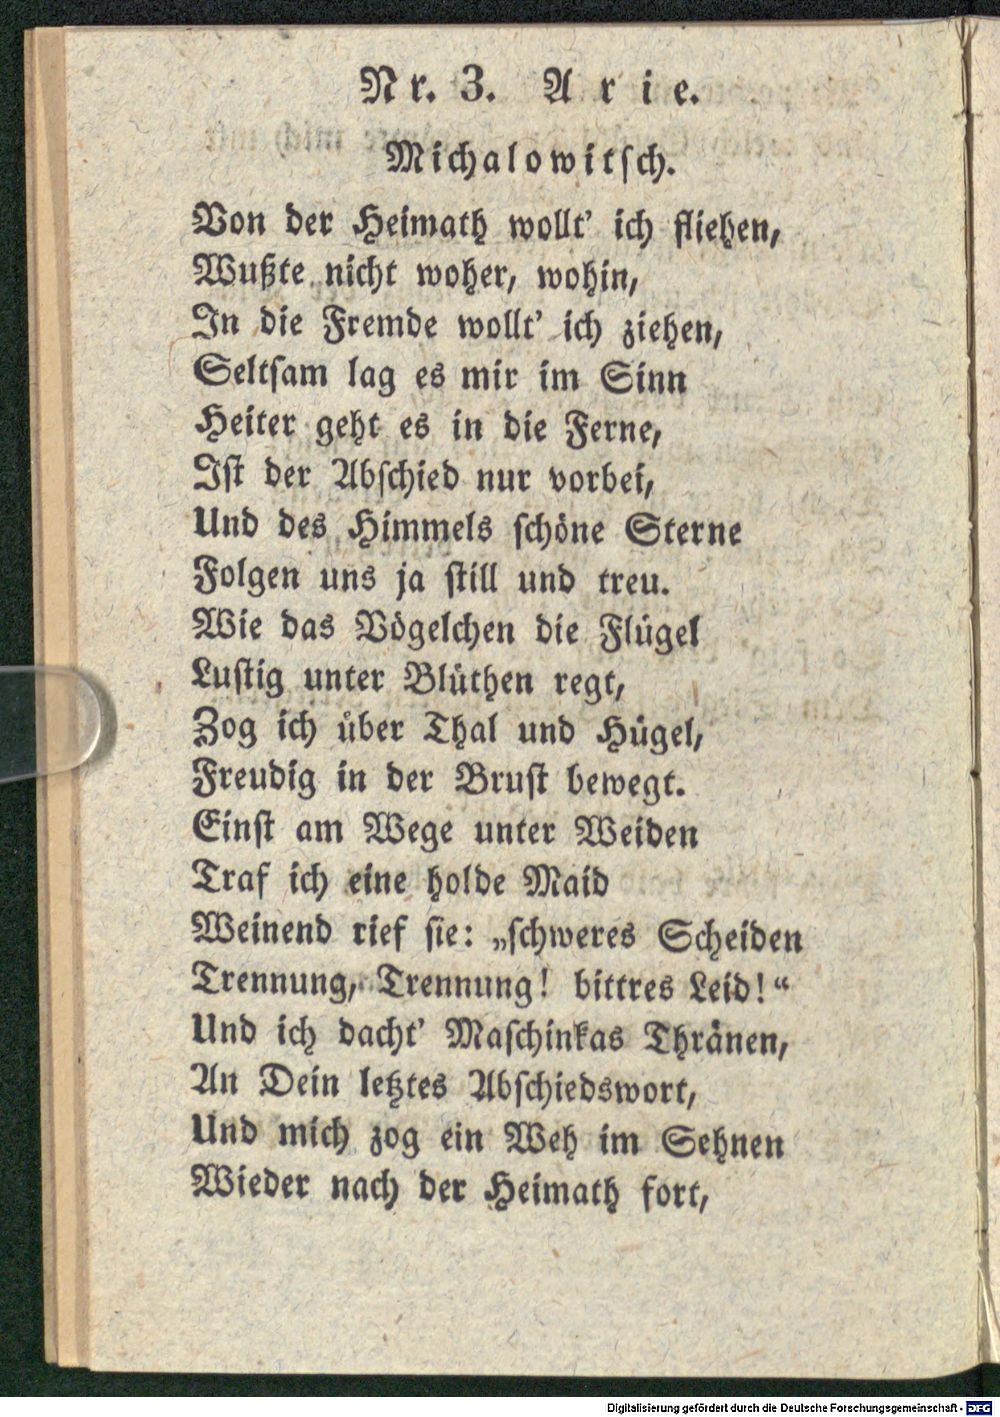 Nr. 3. Arie.
Michalowitsch.
Von der Heimath wollt' ich fliehen,
Wußte nicht woher, wohin,
In die Fremde wollt' ich ziehen,
Seltsam lag es mir im Sinn
Heiter geht es in die Ferne,
Ist der Abschied nur vorbei,
Und des Himmels schöne Sterne
Folgen uns ja still und treu.
Wie das Vögelchen die Flügel
Lustig unter Blüthen regt,
Zog ich über Thal und Hügel,
Freudig in der Brust bewegt.
Einst am Wege unter Weiden
Traf ich eine holde Maid
Weinend rief sie: „schweres Scheiden
Trennung, Trennung! bittres Leid!“
Und ich dacht' Maschinkas Thränen,
An Dein letztes Abschiedswort,
Und mich zog ein Weh im Sehnen
Wieder nach der Heimath fort,
Digitalisierung gefördert durch die Deutsche Forschungsgemeinschaft - DFG